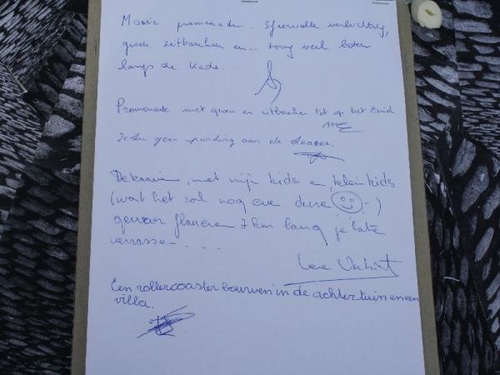 Mooie promenade. Sfeervolle verlichting,
groen zitbanken en... terug veel boten
langs de kade.
Promenade met groen en zitbanken tot op het Zuid
geen aan de
, met mijn kids en klein kids
(wat het zal nog eve dure :-)
gewoon flaneren 7 km lang je late
verrassen....
Een rollercoaster bouwen in de achtertuin en een
villa.